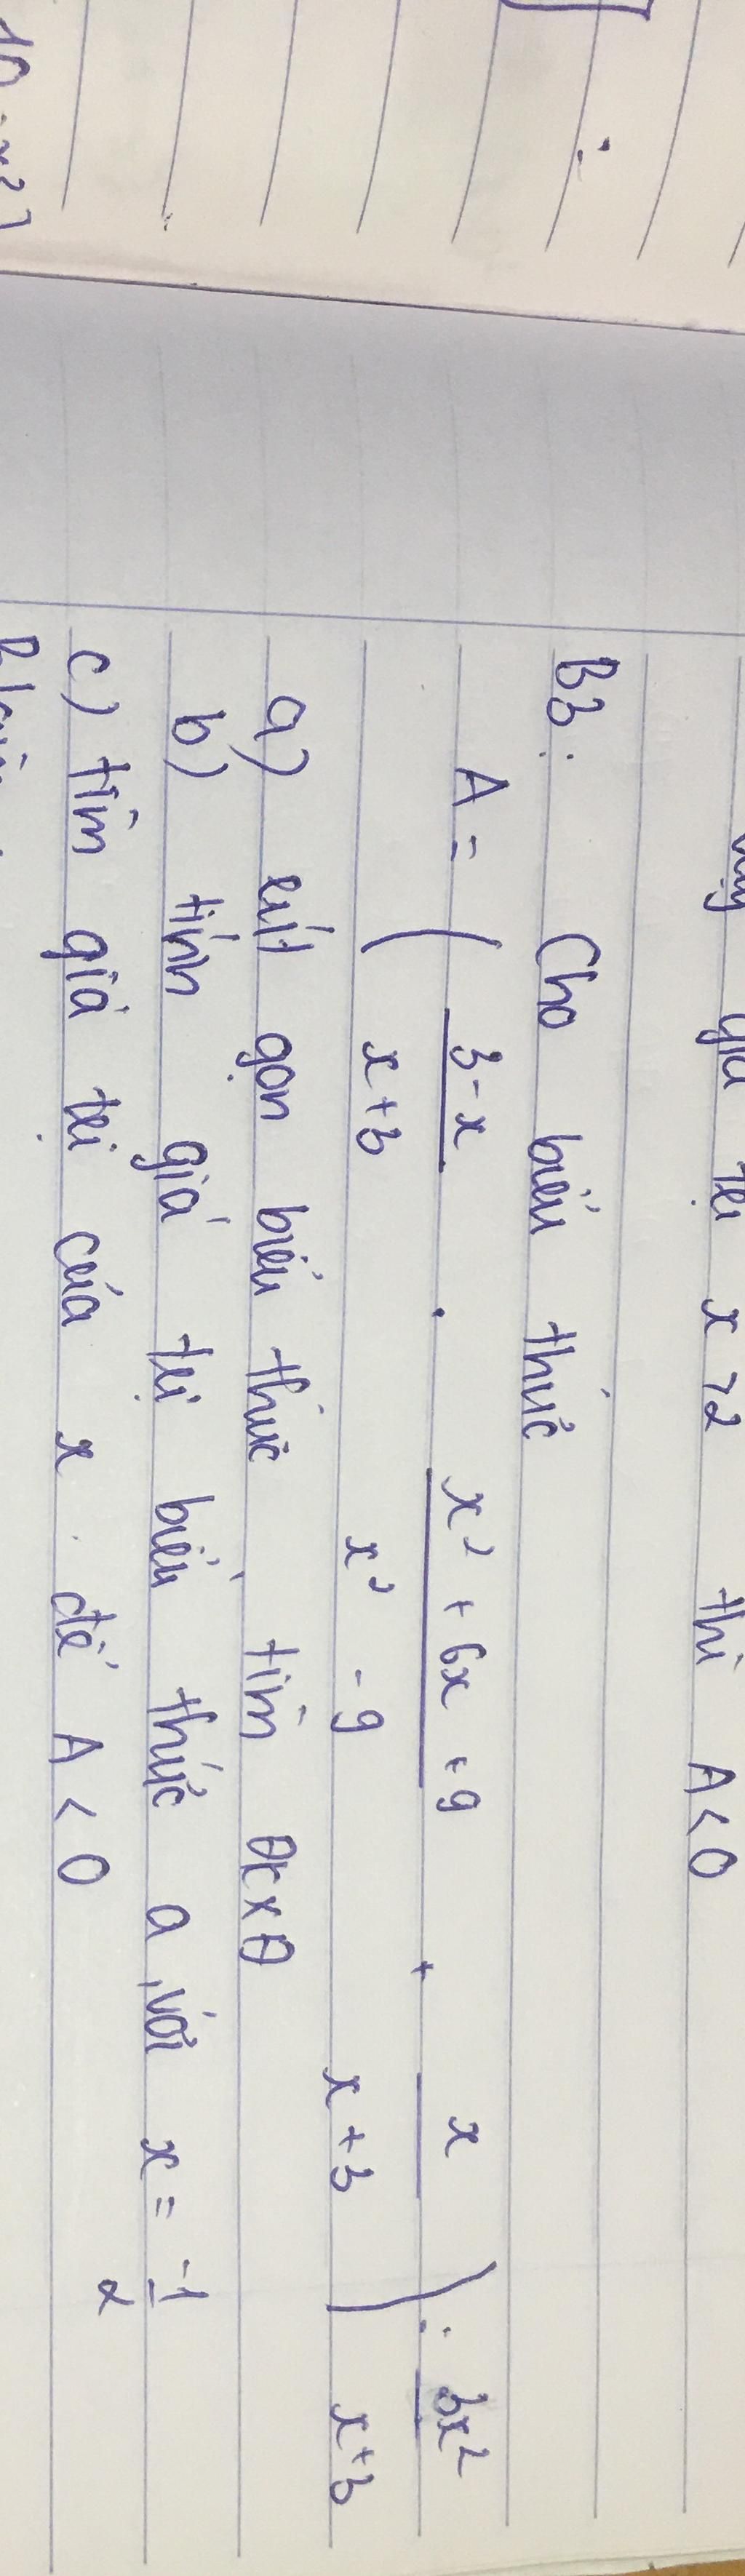 giá trị x > 2 thì A < 0
B3: Cho biểu thức
A = ( 3-x / x+3 . x² + 6x + 9 / x² - 9 + x / x+3 ) : 3x² / x+3
a) rút gọn biểu thức tìm ĐKXĐ
b) tính giá trị biểu thức a, với x = -1/2
c) tìm giá trị của x để A < 0